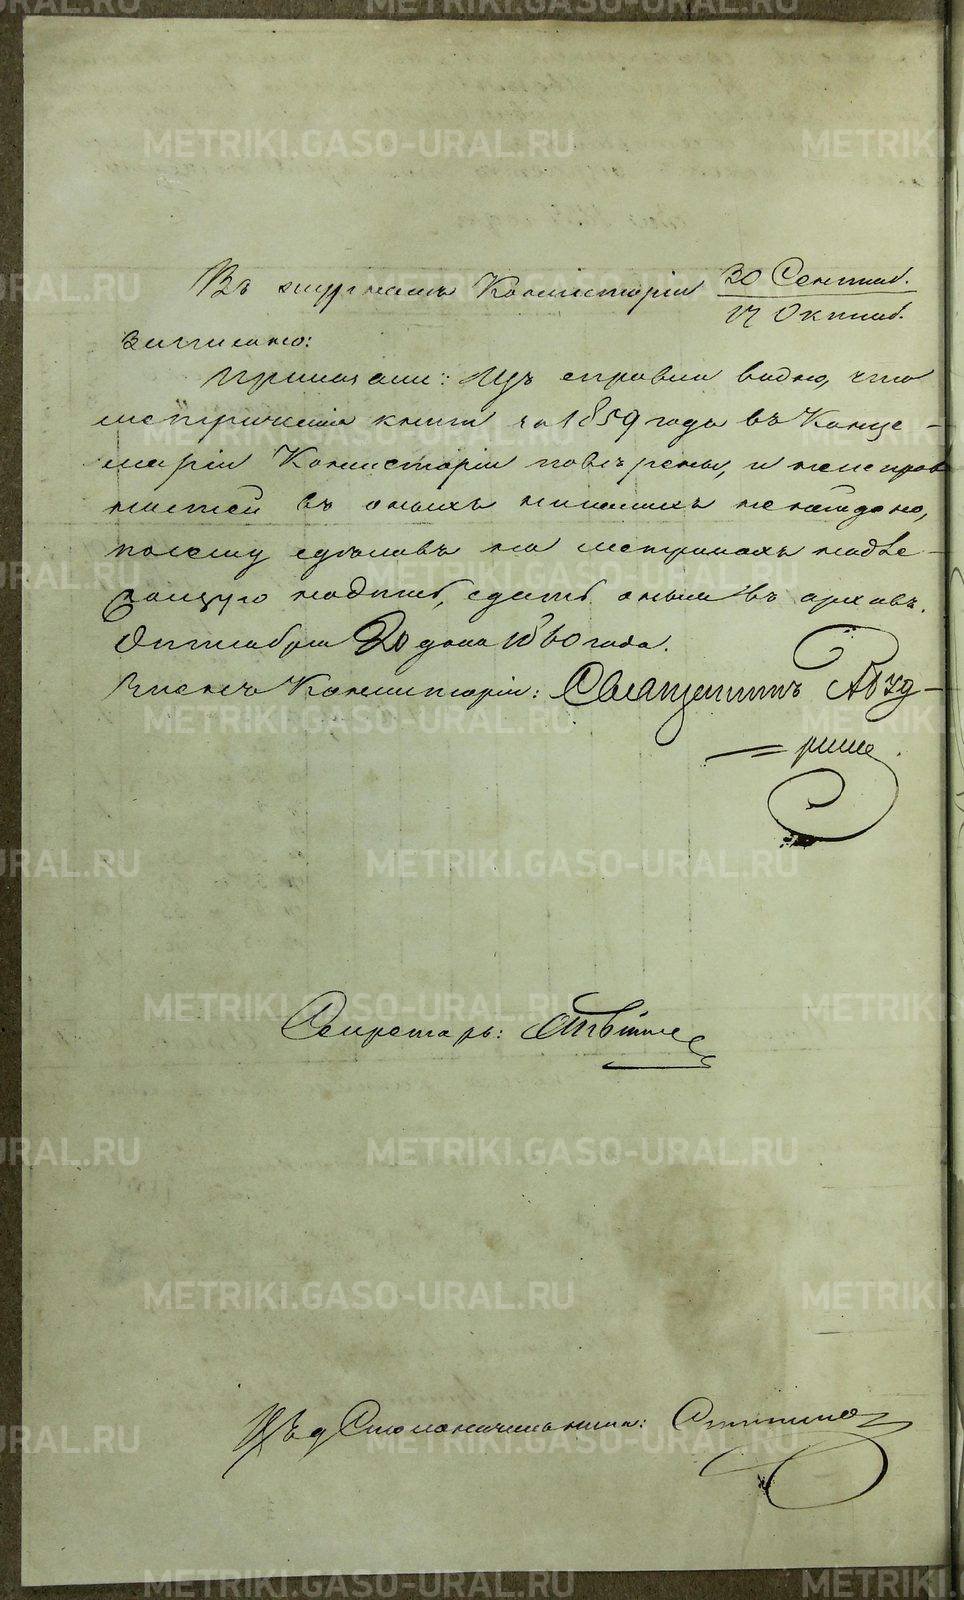 Въ журналѣ Консисторіи 30 Сентяб.
17 Октяб.
записано:
Приказали: Изъ справки видно, что
метрическія книги за 1859 годъ въ Канце-
ляріи Консисторіи повѣрены, и неисправ
ностей въ оныхъ никакихъ не найдено,
почему сдѣлавъ на метрикахъ надле-
жащую надпись, сдать оныя въ архивъ.
Октября 20 дня 1860 года.
Членъ Консисторіи: Священникъ
Секретарь:
Столоначальника:
METRIKI.GASO-URAL.RU